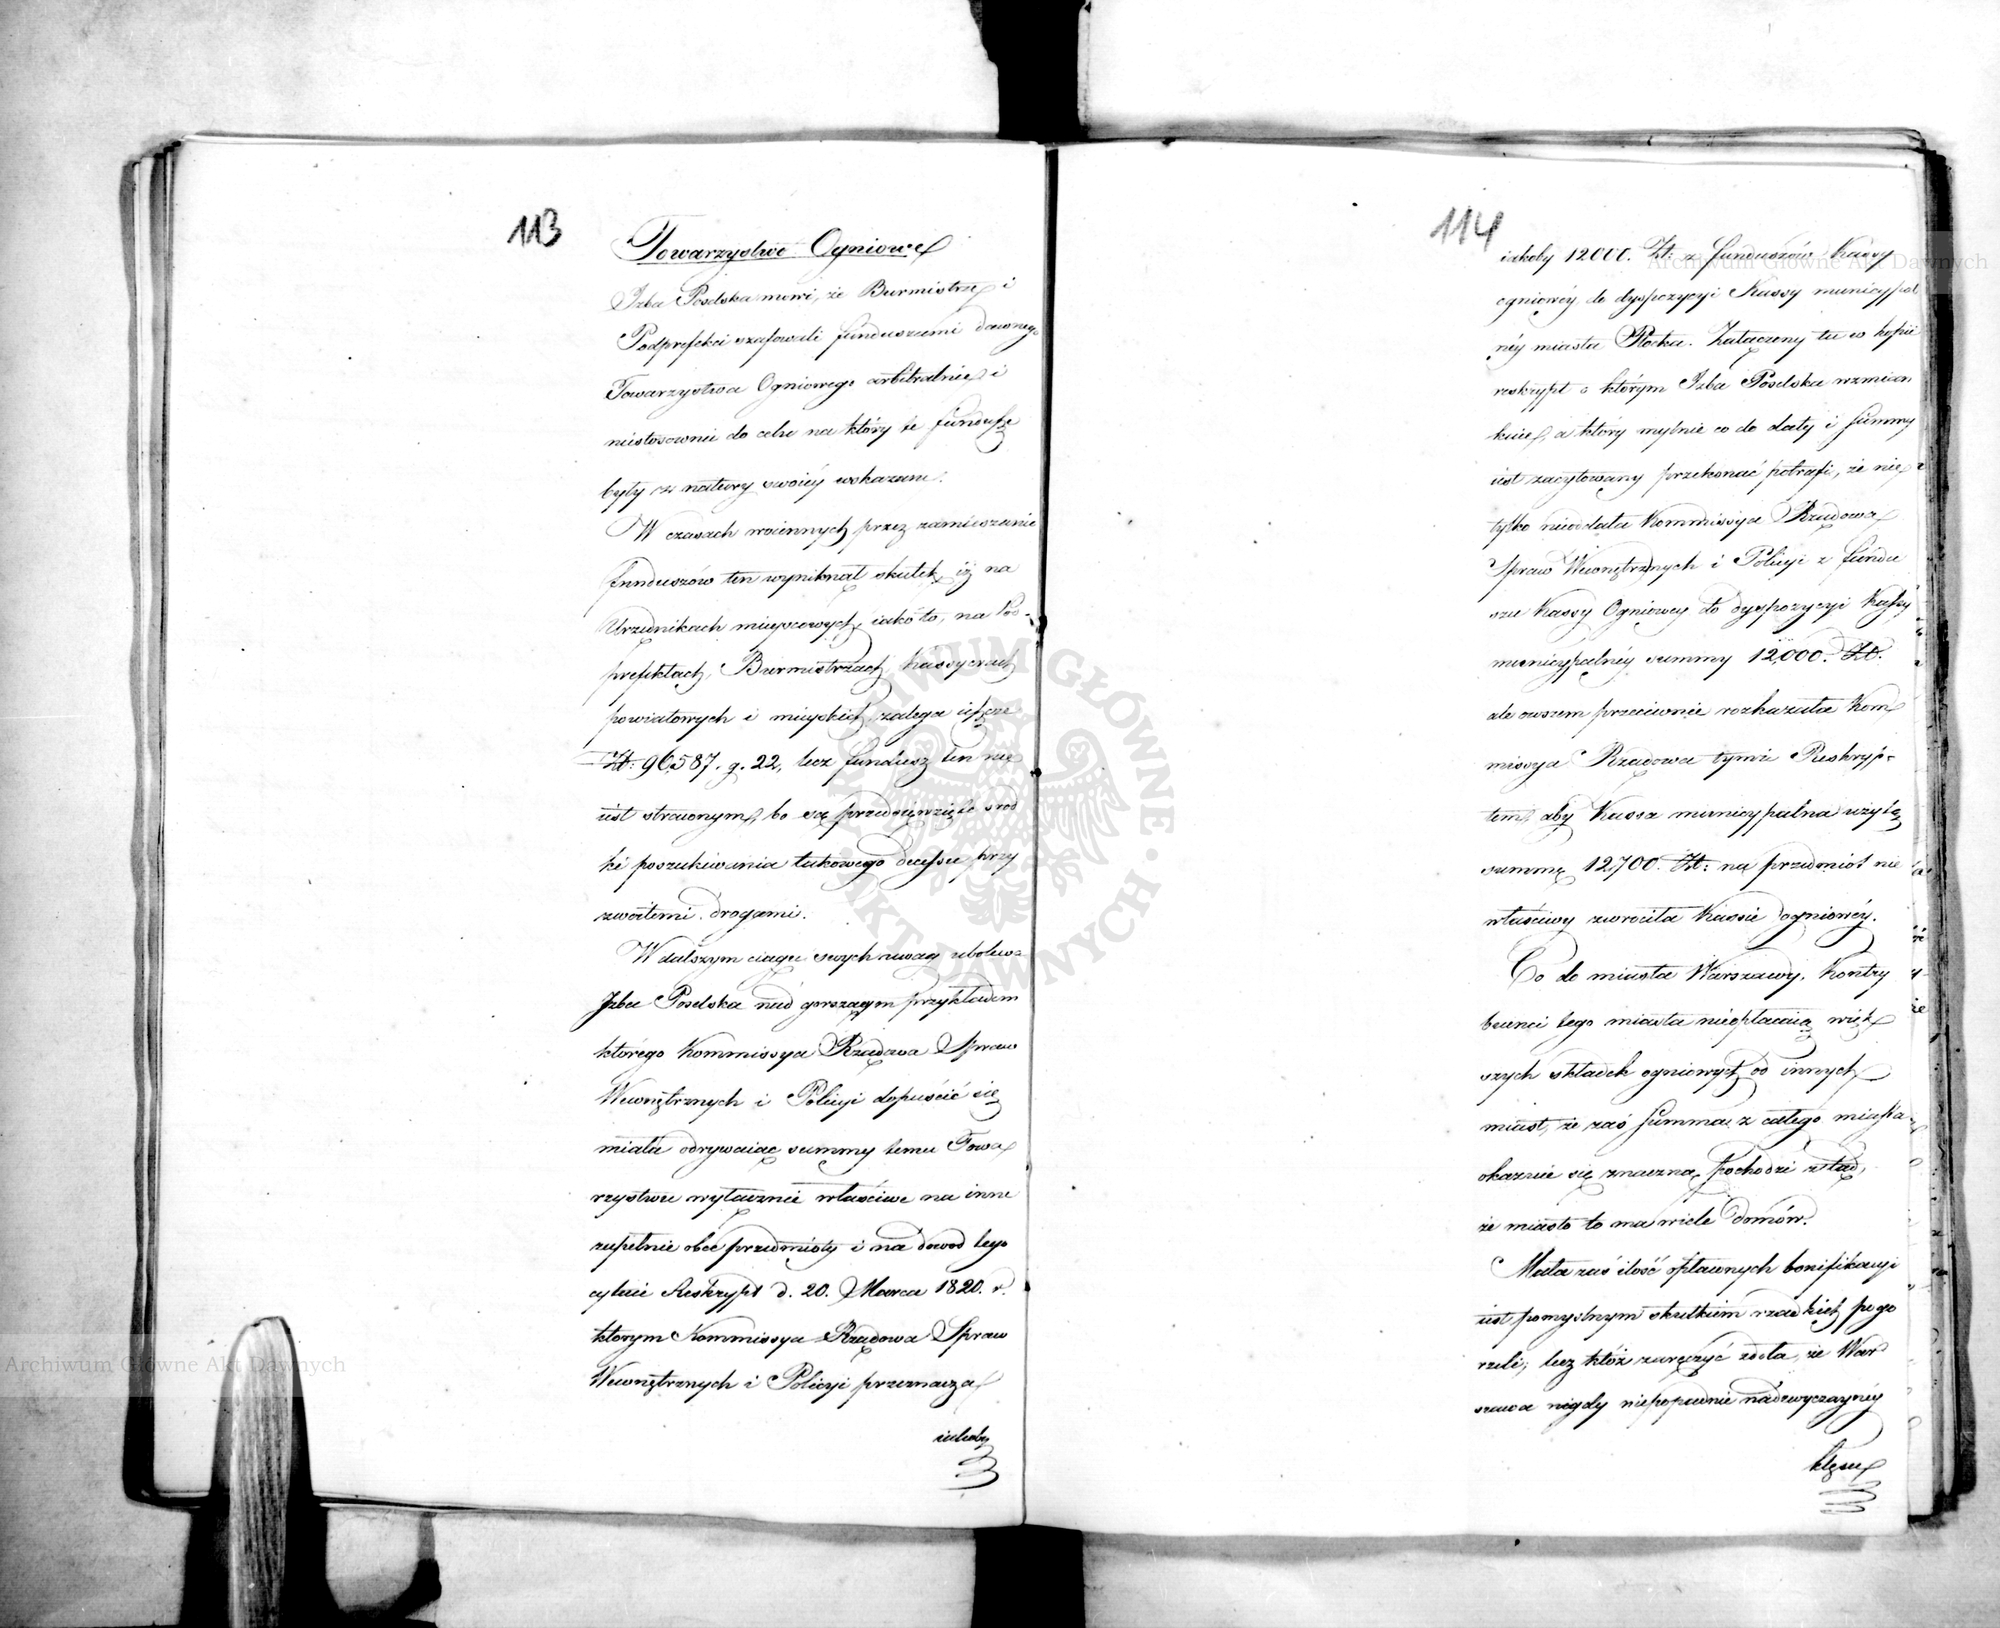 113
Towarzystwo Ogniowe
Izba Poselska mówi, że Burmistrze i
Podprefekci szafowali funduszami dawnego
Towarzystwa Ogniowego arbitralnie i
niestosownie do celu na który te fundusze
były z natury swoiéy wskazane.
W czasach woiennych przez zamieszanie
funduszów ten wyniknął skutek, iż na
Urzędnikach mieyscowych iako to, na Pod-
prefektach, Burmistrzach, Kassyerach
powiatowych i mieyskich zalega ieszcze
Zł: 96,587. g. 22, lecz fundusz ten nie
iest straconym, bo są przedsięwzięte środ
ki poszukiwania takowego decessu przy
zwoitemi drogami.
W dalszym ciągu swych uwag ubolewa
Izba Poselska nad gorszącym przykładem
którego Kommissya Rządowa Spraw
Wewnętrznych i Policyi dopuścić się
miała odrywaiąc summy temu Towa
rzystwu wyłącznie właściwe na inne
zupełnie obce przedmioty i na dowód tego
cytuie Reskrypt d. 20. Marca 1820. r.
którym Kommissya Rządowa Spraw
Wewnętrznych i Policyi przeznacza
iakoby
114
iakoby 12000. Zł: z funduszów Kassy
ogniowéy do dyspozycyi Kassy municypal
néy miasta Płocka. Załączony tu w kopii
reskrypt o którym Izba Poselska wzmian
kuie, a który mylnie co do daty i summy
iest zacytowany przekonać potrafi, że nie
tylko nieoddała Kommissya Rządowa
Spraw Wewnętrznych i Policyi z fundu
szu Kassy Ogniowey do dyspozycyi Kassy
municypalnéy summy 12,000. Zł.
ale owszem przeciwnie rozkazała Kom
missya Rządowa tymże Reskryp-
tem, aby Kassa municypalna użytą
summę 12,700. Zł: na przedmiot nie
właściwy zwróciła Kassie ogniowéy.
Co do miasta Warszawy, Kontry
buenci tego miasta nieopłacaią więk
szych składek ogniowych od innych
miast, że zaś summa z całego miasta
okazuie się znaczną, pochodzi ztąd,
że miasto to ma wiele domów.
Mała zaś ilość opłacanych bonifikacyi
iest pomyślnym skutkiem rzadkich pogo
rzeli; lecz któż zaręczyć zdoła, że War
szawa nigdy niepopadnie nadzwyczaynéy
klęsce
Archiwum Główne Akt Dawnych
Archiwum Główne Akt Dawnych
ARCHIWUM GŁÓWNE AKT DAWNYCH